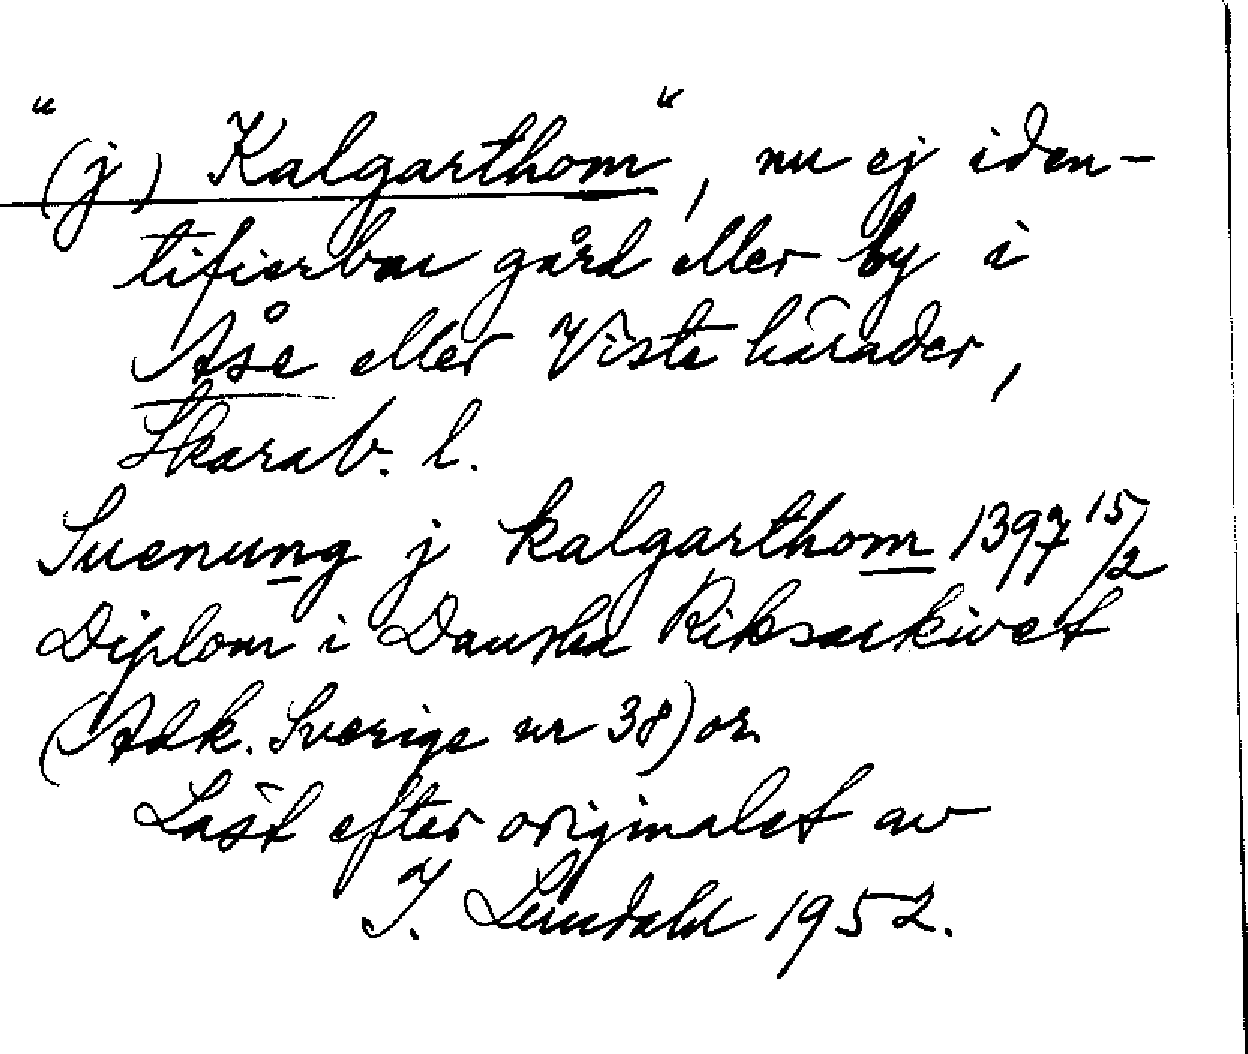 "(j) Kalgarthom", nu ej iden-
tifierbar gård eller by i
Åse eller Viste härader,
Skarab. l.
Suenung j kalgarthom 1397 15/2
Diplom i Danska Riksarkivet
(Adk. Sverige nr 38) or.
Läst efter originalet av
I. Lundahl 1952.